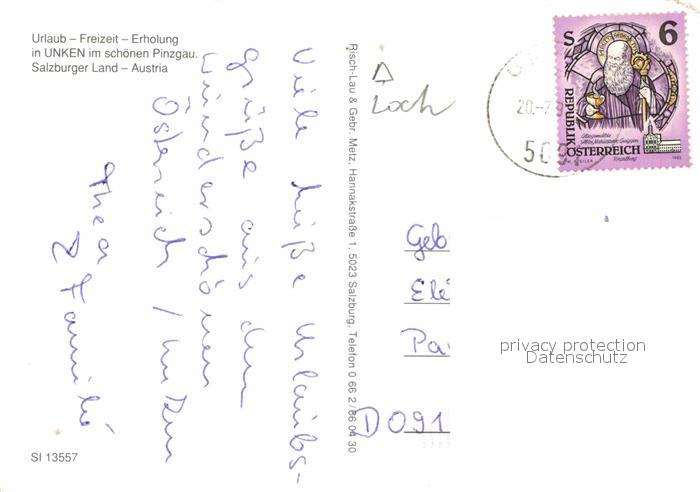 Urlaub – Freizeit – Erholung
in UNKEN im schönen Pinzgau.
Salzburger Land – Austria
Viele Grüße Urlaubs-
grüße aus dem
wunderschönen
Österreich / Unken
Thea
& Familie
SI 13557
Risch-Lau & Gebr. Metz, Hannakstraße 1, 5023 Salzburg, Telefon 0 66 2/86 04 30
Loch
20.-7.
509
S 6
REPUBLIK
ÖSTERREICH
Geb
Eli
Pa
D 091
privacy protection
Datenschutz